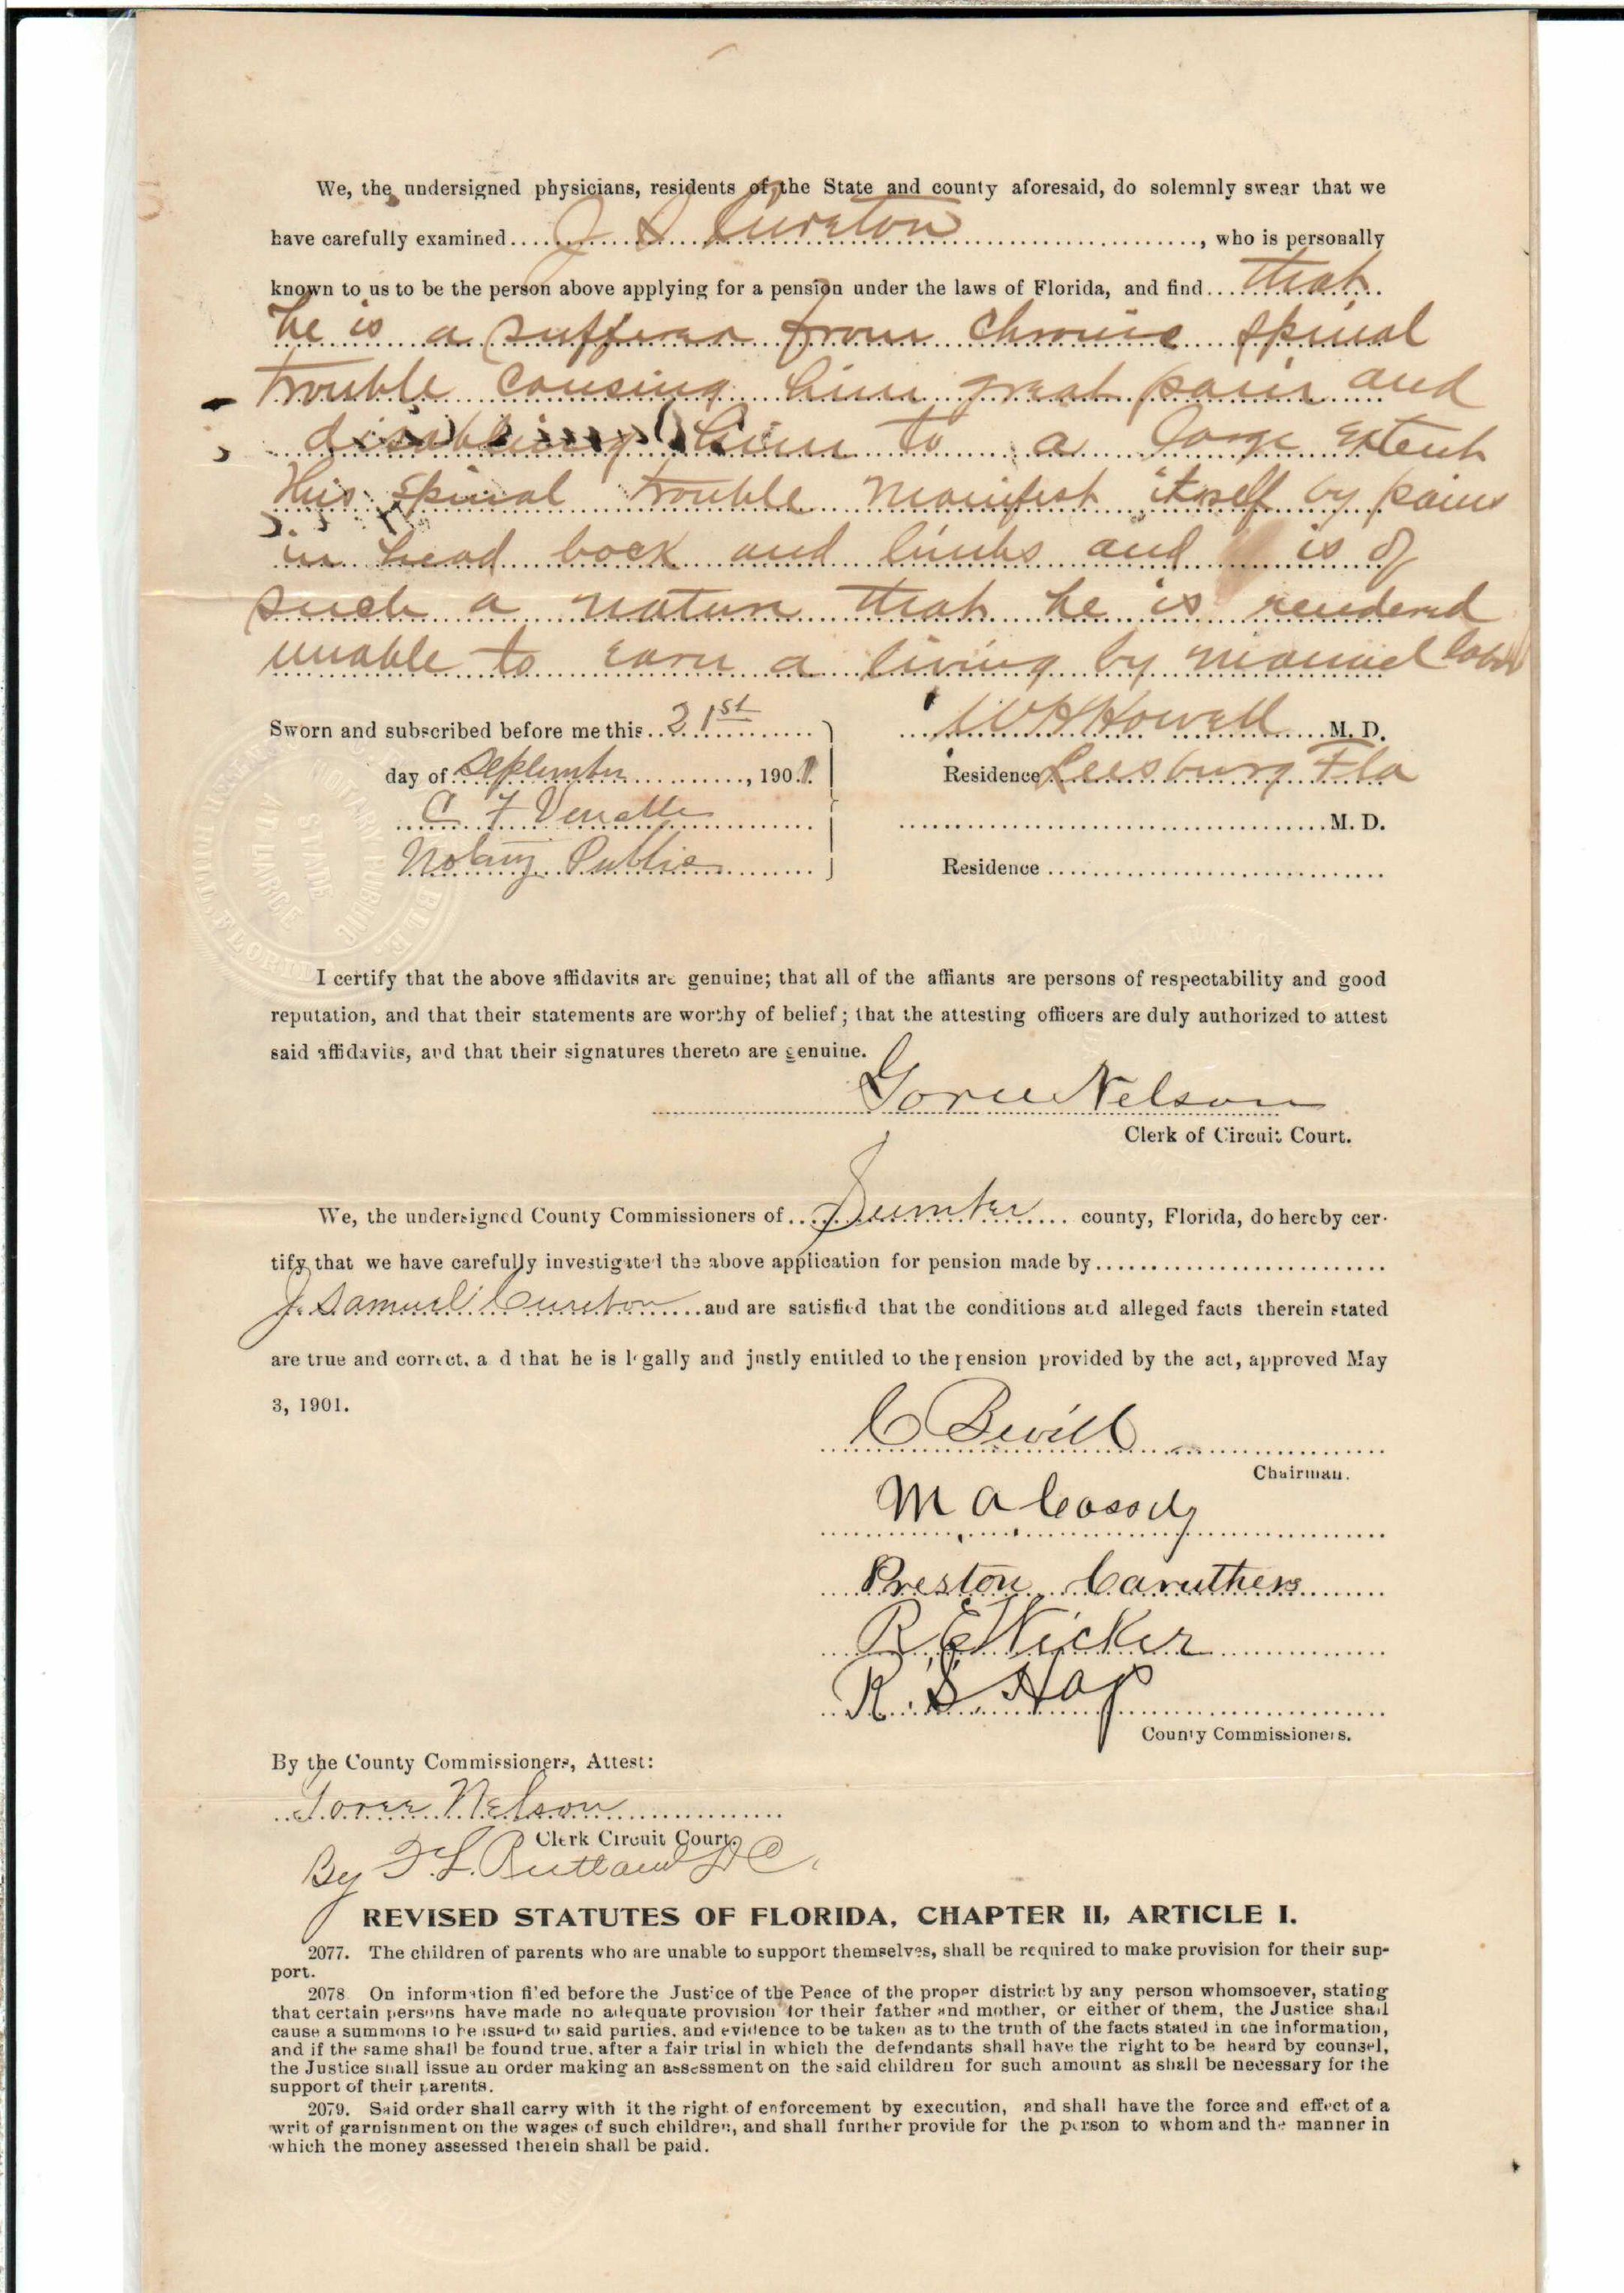 We, the undersigned physicians, residents of the State and county aforesaid, do solemnly swear that we
have carefully examined J S Cureton, who is personally
known to us to be the person above applying for a pension under the laws of Florida, and find that
he is a sufferer from Chronic spinal
trouble causing him great pain and
disabling him to a large extent
His spinal trouble manifest itself by pains
in head back and limbs and is of
such a nature that he is rendered
unable to earn a living by manual labor
Sworn and subscribed before me this 21st
day of September, 1901
C F
Notary Public
W H Howell M. D.
Residence Leesburg Fla
M. D.
Residence
NOTARY PUBLIC
STATE
AT LARGE
I certify that the above affidavits are genuine; that all of the affiants are persons of respectability and good
reputation, and that their statements are worthy of belief; that the attesting officers are duly authorized to attest
said affidavits, and that their signatures thereto are genuine.
Nelson
Clerk of Circuit Court.
We, the undersigned County Commissioners of Sumter county, Florida, do hereby cer-
tify that we have carefully investigated the above application for pension made by
J. Samuel Cureton and are satisfied that the conditions and alleged facts therein stated
are true and correct. a d that he is legally and justly entitled to the pension provided by the act, approved May
3, 1901.
C Bevill
Chairman.
M A Cassady
Preston Caruthers
R E Wicker
R. S. Hay
County Commissioners.
By the County Commissioners, Attest:
Nelson
Clerk Circuit Court.
By T. L. Rutland D C.
REVISED STATUTES OF FLORIDA, CHAPTER II, ARTICLE I.
2077. The children of parents who are unable to support themselves, shall be required to make provision for their sup-
port.
2078 On information filed before the Justice of the Peace of the proper district by any person whomsoever, stating
that certain persons have made no adequate provision for their father and mother, or either of them, the Justice shall
cause a summons to be issued to said parties, and evidence to be taken as to the truth of the facts stated in the information,
and if the same shall be found true, after a fair trial in which the defendants shall have the right to be heard by counsel,
the Justice shall issue an order making an assessment on the said children for such amount as shall be necessary for the
support of their parents.
2079. Said order shall carry with it the right of enforcement by execution, and shall have the force and effect of a
writ of garnishment on the wages of such children, and shall further provide for the person to whom and the manner in
which the money assessed therein shall be paid.